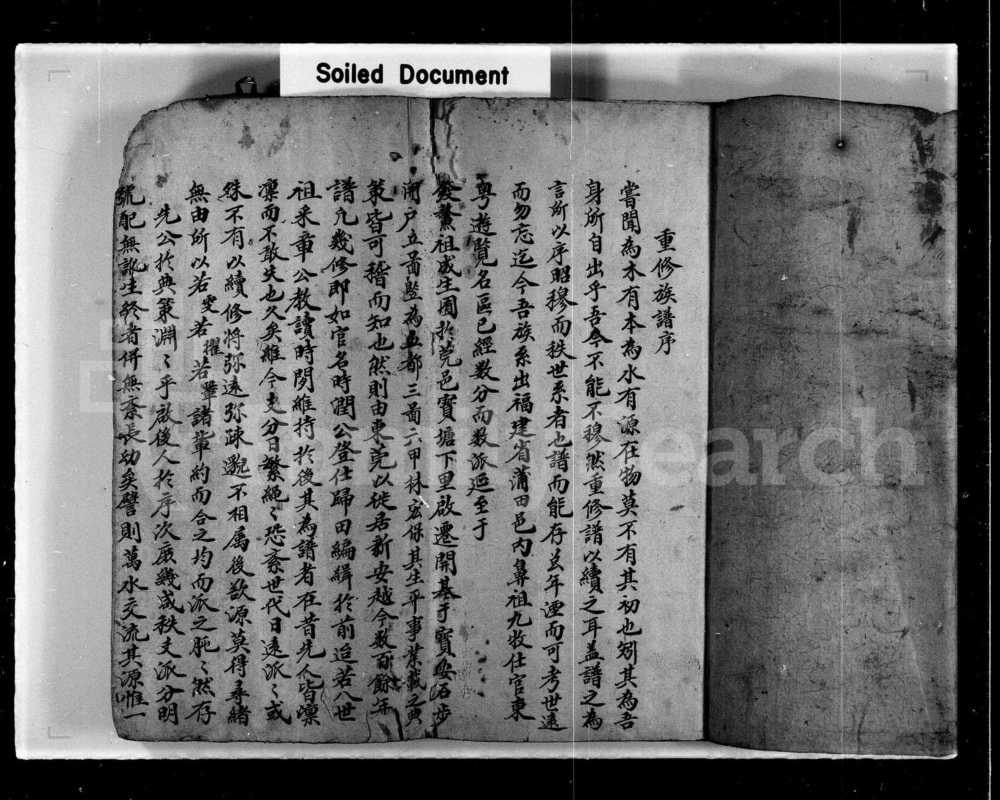 Soiled Document
重修族譜序
嘗聞為木有本為水有源在物莫不有其初也矧其為吾
身所自出乎吾今不能不穆然重修譜以續之耳盖譜之為
言所以序昭穆而秩世系者也譜而能存吾年湮而可考世遠
而勿忘迄今吾族系出福建省蒲田邑內鼻祖九牧仕官東
粵遊覽名區已經数分而数派延至于
發鰲祖成生圃於莞邑寳塘下里啟遷開基于寳安石步
開户立啚竪為五都三啚六甲林宏保其生平事業載之典
策皆可稽而知也然則由東莞以徙居新安越今数百餘年
譜凢幾修即如官名時潤公登仕歸田編緝於前迨若八世
祖采章公教讀時閔維持於後其為譜者在昔先人皆凜
凜而不敢失也久矣維今支分日繁繩〻恐紊世代日遠派〻或
殊不有以續修將弥遠弥疎邈不相属後欲源莫得尋緒
無由所以若雯若擢若肇諸軰約而合之均而派之肫〻然存
先公於典策淵〻乎啟後人於序次庶幾咸秩支派分明
號配無訛生終者併無紊長幼矣譬則萬水交流其源惟一